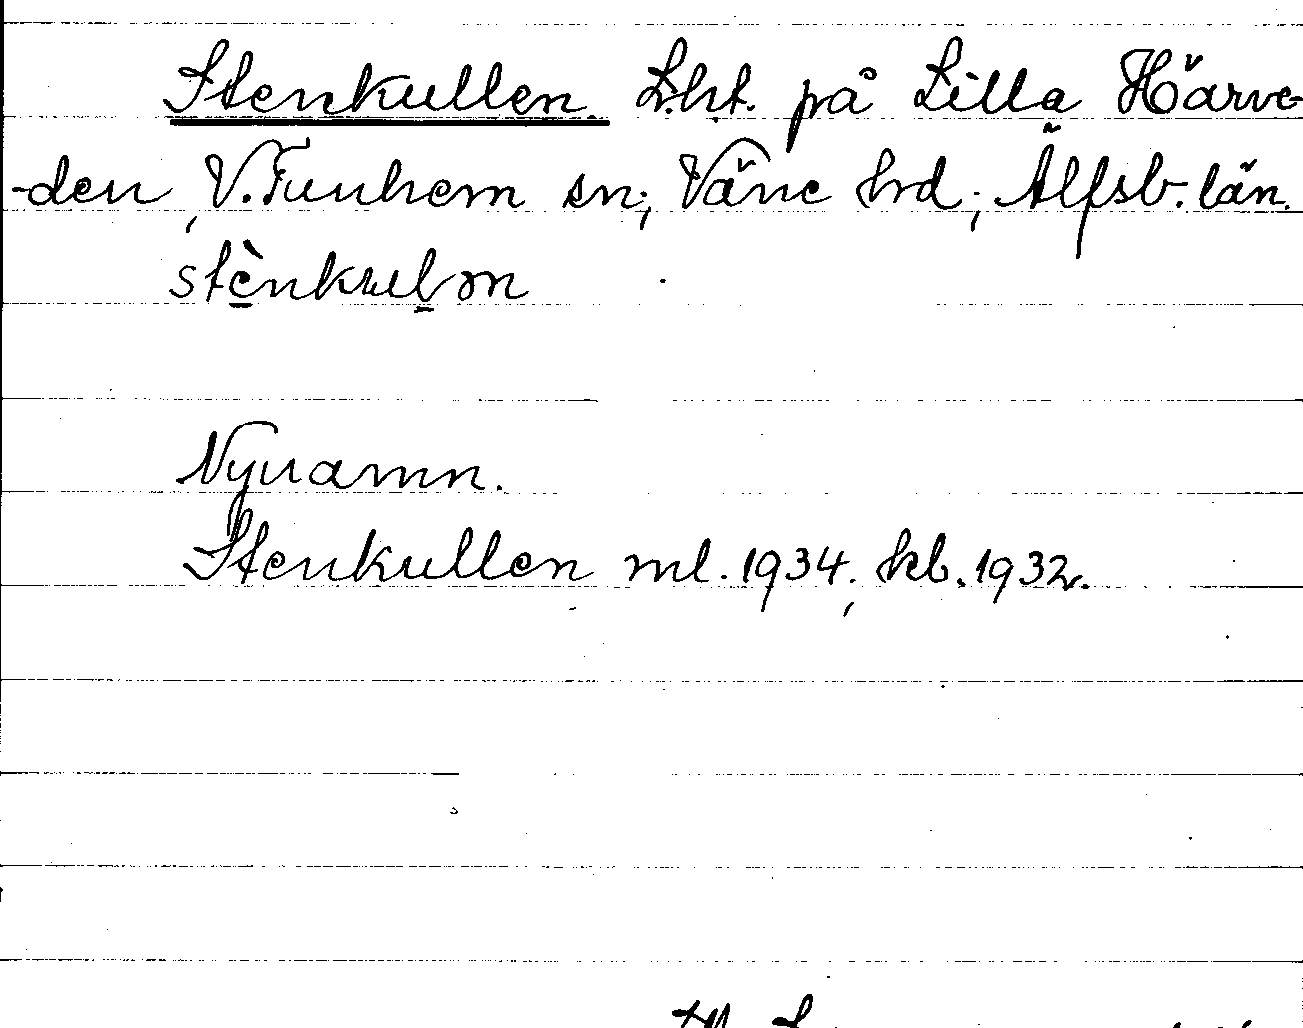 Stenkullen. L.ht. på Lilla Härve-
-den, V. Tunhem sn; Väne hd; Älfsb. län.
stènkulɷn
Nynamn.
Stenkullen ml. 1934, kb. 1932.